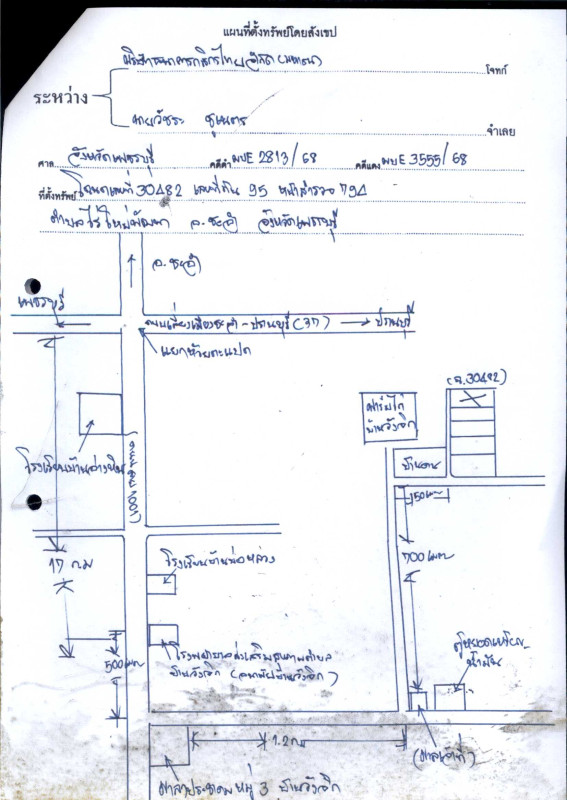 แผนที่ตั้งทรัพย์โดยสังเขป
บริษัทธนาคารกสิกรไทย จำกัด (มหาชน) โจทก์
ระหว่าง
นายวัชระ จำเลย
ศาล จังหวัดเพชรบุรี คดีดำ ผบE 2813/68 คดีแดง ผบE 3555/68
ที่ตั้งทรัพย์ โฉนดเลขที่ 30482 เลขที่ดิน 95 หน้าสำรวจ 794
ตำบลไร่ใหม่พัฒนา อ.ชะอำ จังหวัดเพชรบุรี
อ.ชะอำ
เพชรบุรี
ถนนเลี่ยงเมืองชะอำ-ปราณบุรี (37) ปราณบุรี
แยกห้วยตะแปด
(ฉ.30482)
ฟาร์มไก่
บ้านวังจิก
โรงเรียนบ้านอ่างหิน
บ้านคน
50 เมตร
700 เมตร
โรงเรียนบ้านบ่อหลวง
17 ก.ม
500 เมตร
โรงพยาบาลส่งเสริมสุขภาพตำบล
บ้านวังจิก (อนามัยบ้านวังจิก)
ตู้หยอดเหรียญ
น้ำมัน
1.2 กม
(ศาลเจ้าที่)
ศาลาประชาคมหมู่ 3 บ้านวังจิก